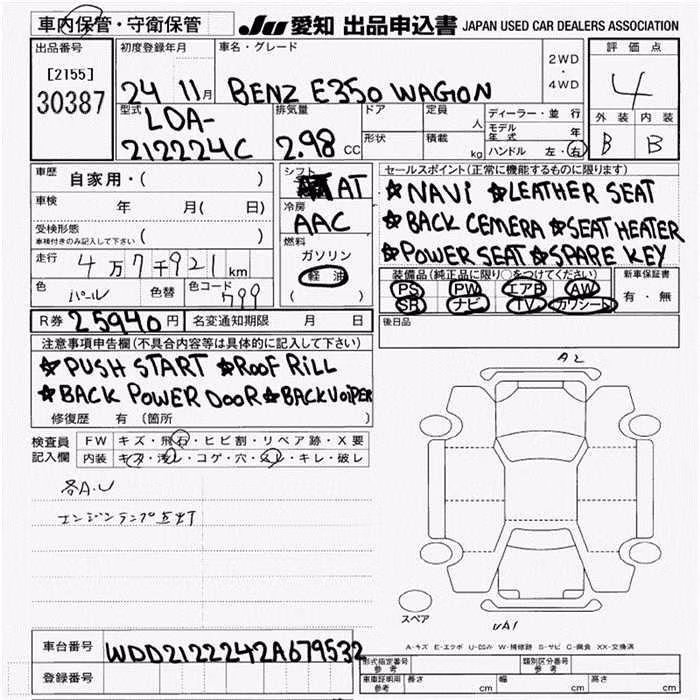 車内保管・守衛保管
JU 愛知 出品申込書 JAPAN USED CAR DEALERS ASSOCIATION
出品番号 初度登録年月 車名・グレード 2WD・4WD 評価点
[2155] 30387 24 11月 BENZ E350 WAGON 4
型式 排気量 ドア 定員 人 ディーラー・並行 外装 内装
LDA-212224C 2.98 CC 形状 積載 kg モデル年式 年 B B
ハンドル 左・右
車歴 自家用・( ) シフト AT セールスポイント(正常に機能するものに限ります)
★NAVI ★LEATHER SEAT
車検 年 月( 日) 冷房 AAC
★BACK CEMERA ★SEAT HEATER
受検形態 車検付きのみ記入して下さい ( ) 燃料 ガソリン 軽油 ( )
★POWER SEAT ★SPARE KEY
走行 4万7千921km
装備品(純正品に限り○をつけてください) 新車保証書
色 パール 色替 色コード 799
PS PW エアB AW 有・無
SR ナビ TV カワシート
R券 25940円 名変通知期限 月 日 後日品
注意事項申告欄(不具合内容等は具体的に記入して下さい)
★PUSH START ★ROOF RILL
★BACK POWER DOOR ★BACK VOIPER
修復歴 有 (箇所 )
検査員記入欄 FW キズ・飛石・ヒビ割・リペア跡・X要
内装 キズ・汚レ・コゲ・穴・スレ・キレ・破レ
各A.U
エンジンランプ点灯
A2
スペア
UA1
A-キズ E-エクボ U-凹み W-補修跡 S-サビ C-腐食 XX-交換済
車台番号 WDD2122242A679532
登録番号
形式指定番号 参考 類別区分番号 参考
車庫証明用 参考 長さ cm 幅 cm 高さ cm